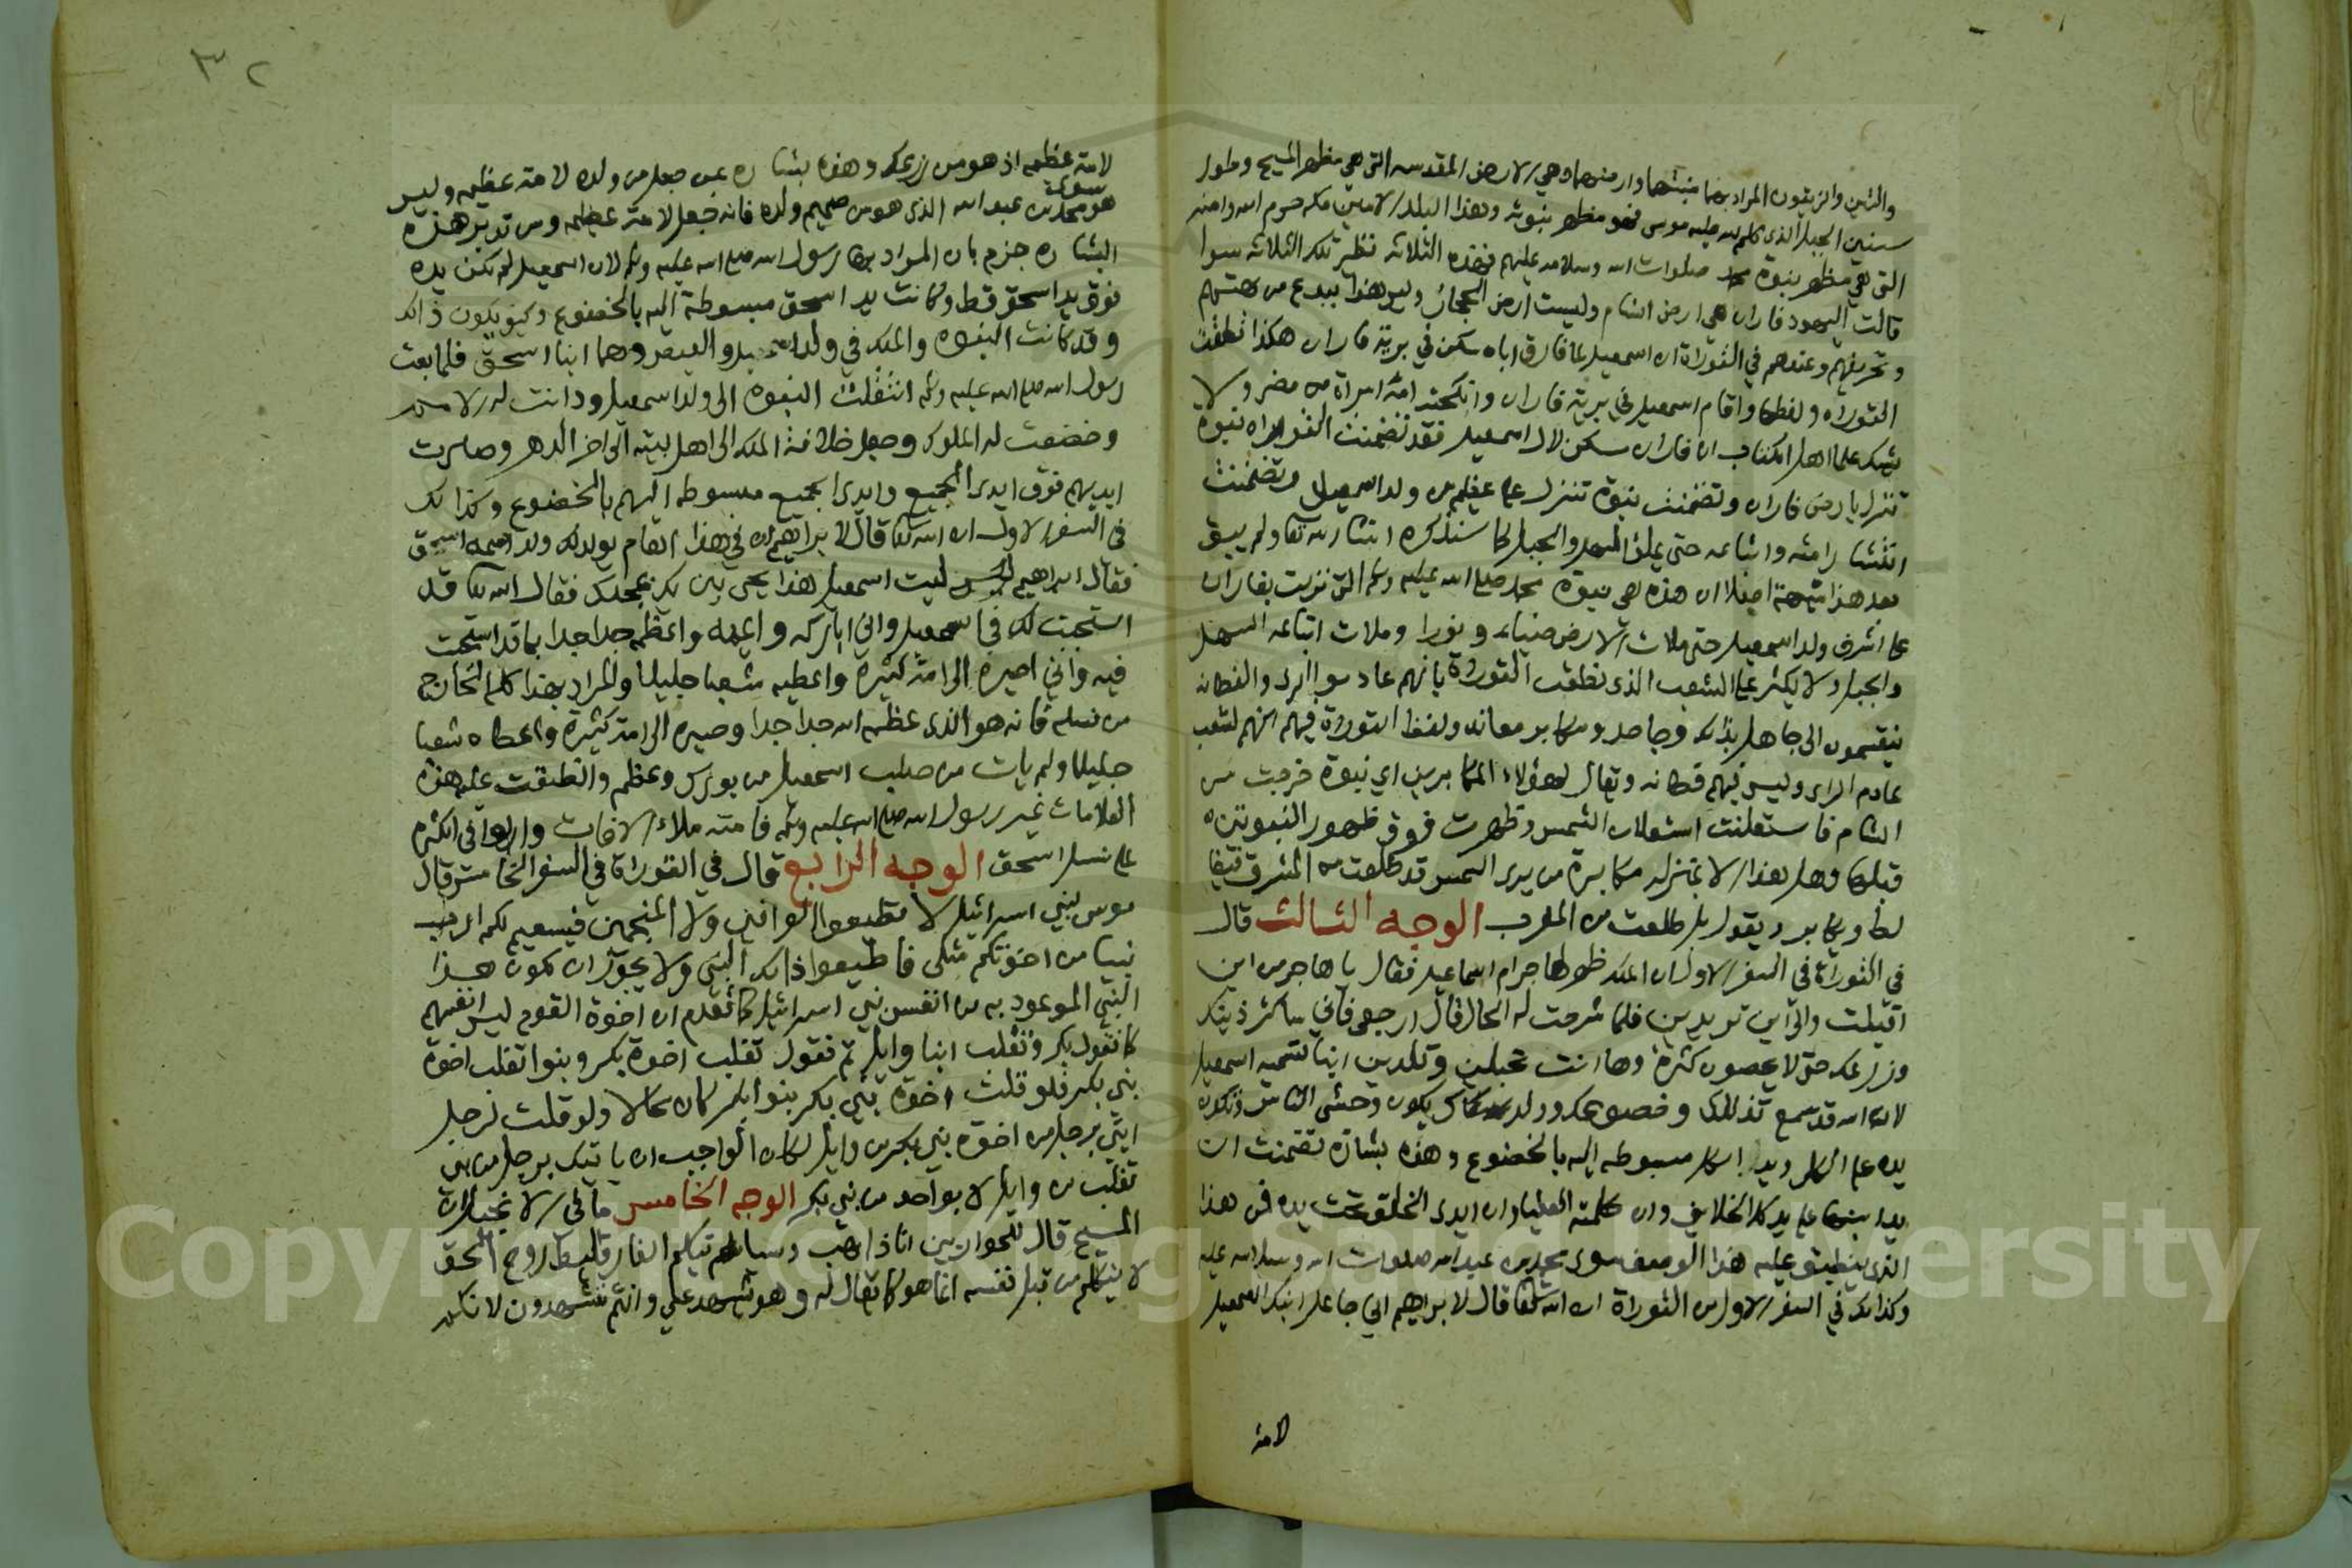 والتين والزيتون المراد بهما منبتهما وارضهما وهي الارض المقدسه التي هي مظهر المسيح وطور
سينين الجبل الذي كلم الله عليه موسى فهو مظهر نبوته وهذا البلد الامين مكه حرم الله وامنه
التي هي مظهر نبوة محمد صلوات الله وسلامه عليهم فهذه الثلاثه نظير تلك الثلاثه سوا
قالت اليهود فاران هي ارض الشام وليست ارض الحجاز وليس هذا ببدع من بهتهم
وتحريفهم وعندهم في التوراة ان اسمعيل لما فارق اباه سكن في برية فاران هكذا نطقت
التوراه ولفظها واقام اسمعيل في برية فاران وانكحته امه امراة من مصر ولا
يشك علما اهل الكتاب ان فاران مسكن لال اسمعيل فقد تضمنت التوراه نبوة
تنزل بارض فاران وتضمنت نبوة تنزل على عظيم من ولد اسمعيل وتضمنت
انتشار امته واتباعه حتى يملئ السهل والجبل كما سنذكره ان شا الله تعا ولم يبق
بعد هذا شبهة اصلا ان هذه هي نبوة محمد صلى الله عليه وسلم التي نزلت بفاران
على اشرف ولد اسمعيل حتى ملات الارض ضياء ونورا وملات اتباعه السهل
والجبل ولا يكثر على الشعب الذي نطقت التوراة بانهم عادموا الراي والفطانه
ينقسمون الى جاهل بذلك وجاحد ومكابر معاند ولفظ التوراة فيهم انهم لشعب
عادم الراي وليس فيهم فطانه ويقال لهؤلاء المكابرين اي نبوة خرجت من
الشام فاستعلنت استعلان الشمس وظهرت فوق ظهور النبوتين
قبلها وهل هذا الا بمنزله مكابرة من يرى الشمس قد طلعت من المشرق فيغا
لط ويكابر ويقول بل طلعت من المغرب الوجه الثالث قال
في التوراة في السفر الاول ان الملك ظهر لهاجر ام اسماعيل فقال يا هاجر من اين
اقبلت والى اين تريدين فلما شرحت له الحال قال ارجعي فاني ساكثر ذريتك
وزرعك حتى لا يحصون كثرة وها انت تحبلين وتلدين ابنا تسميه اسمعيل
لان الله قد سمع تذللك وخضوعك وولدك يكون وحشي الناس وتكون
يده على الكل ويد الكل مبسوطه اليه بالخضوع وهذه بشارة تضمنت ان
يد ابنها على يد كل الخلايق وان كلمته العليا وان ايدي الخلق تحت يده فمن هذا
الذي ينطبق عليه هذا الوصف سوى محمد بن عبد الله صلوات الله وسلامه عليه
وكذلك في السفر الاول من التوراة ان الله تعا قال لابراهيم اني جاعل ابنك اسمعيل
لامة
٣٢
لامة عظيمه اذ هو من زرعك وهذه بشاره بمن جعل من ولده لامة عظيمه وليس
هو سوى محمد بن عبد الله الذي هو من صميم ولده فانه جعل لامة عظيمه ومن تدبر هذه
البشاره جزم بان المراد بها رسول الله صلى الله عليه وسلم لان اسمعيل لم تكن يده
فوق يد اسحق قط وكانت يد اسحق مبسوطة اليه بالخضوع وكيف يكون ذلك
وقد كانت النبوه والملك في ولد اسرائيل والعيص وهما ابنا اسحق فلما بعث
رسول الله صلى الله عليه وسلم انتقلت النبوه الى ولد اسمعيل ودانت له الامم
وخضعت له الملوك وجعل خلافة الملك الى اهل بيته الى اخر الدهر وصارت
ايديهم فوق ايدي الجميع وايدي الجميع مبسوطه اليهم بالخضوع وكذلك
في السفر الاول ان الله تعا قال لابراهيم ان في هذا العام يولد لك ولد اسمه اسحق
فقال ابراهيم ليت اسمعيل هذا يحيى بين يديك يمجدك فقال الله تعا قد
استجبت لك في اسمعيل واني اباركه وايمنه واعظمه جدا جدا بما قد استجبت
فيه واني اصيره الى امة كثيرة واعطيه شعبا جليلا والمراد بهذا كله الخارج
من نسله فانه هو الذي عظمه الله جدا جدا وصيره الى امة كثيرة واعطاه شعبا
جليلا ولم يات من صلب اسمعيل من بورك وعظم وانطبقت عليه هذه
العلامات غير رسول الله صلى الله عليه وسلم فامته ملاء الافاق واربوا في الكثره
على نسل اسحق الوجه الرابع قال في التوراة في السفر الخامس قال
موسى لبني اسرائيل لا تطيعوا العرافين ولا المنجمين فسيقيم لكم الرب
نبيا من اخوتكم مثلي فاطيعوا ذلك النبي ولا يجوز ان يكون هذا
النبي الموعود به من انفس بني اسرائيل كما تقدم ان اخوة القوم ليس انفسهم
كما تقول بكر وتغلب ابنا وايل ثم تقول تغلب اخوة بكر وبنوا تغلب اخوة
بني بكر فلو قلت اخوة بني بكر بنوا بكر كان محالا ولو قلت لرجل
ايتني برجل من اخوة بني بكر من وايل لكان الواجب ان ياتيك برجل من بني
تغلب من وايل لا بواحد من بني بكر الوجه الخامس ما في الانجيل ان
المسيح قال للحواريين انا ذاهب وسياتيكم الفارقليط روح الحق
لا يتكلم من قبل نفسه انما هو كما يقال له وهو يشهد علي وانتم تشهدون لانكم